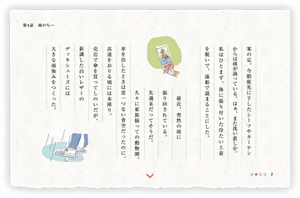 第4話 雨のち…
案の定、今朝軒先に干したシーツやカーテン
からは雨が滴っている。はぁ、また洗い直しか。
私はひとまず、体に張り付いた冷たい上着
を脱いで、湯船で温まることにした。
最近、突然の雨に
振り回されている。
先週末だってそうだ。
久々に家族揃っての動物園。
車を出したときは雲一つない青空だったのに、
高速をおりる頃には本降り。
売店で傘を買ってしのいだが、
新調した白いレザーの
デッキシューズには
大きな雨染みをつくった。
2